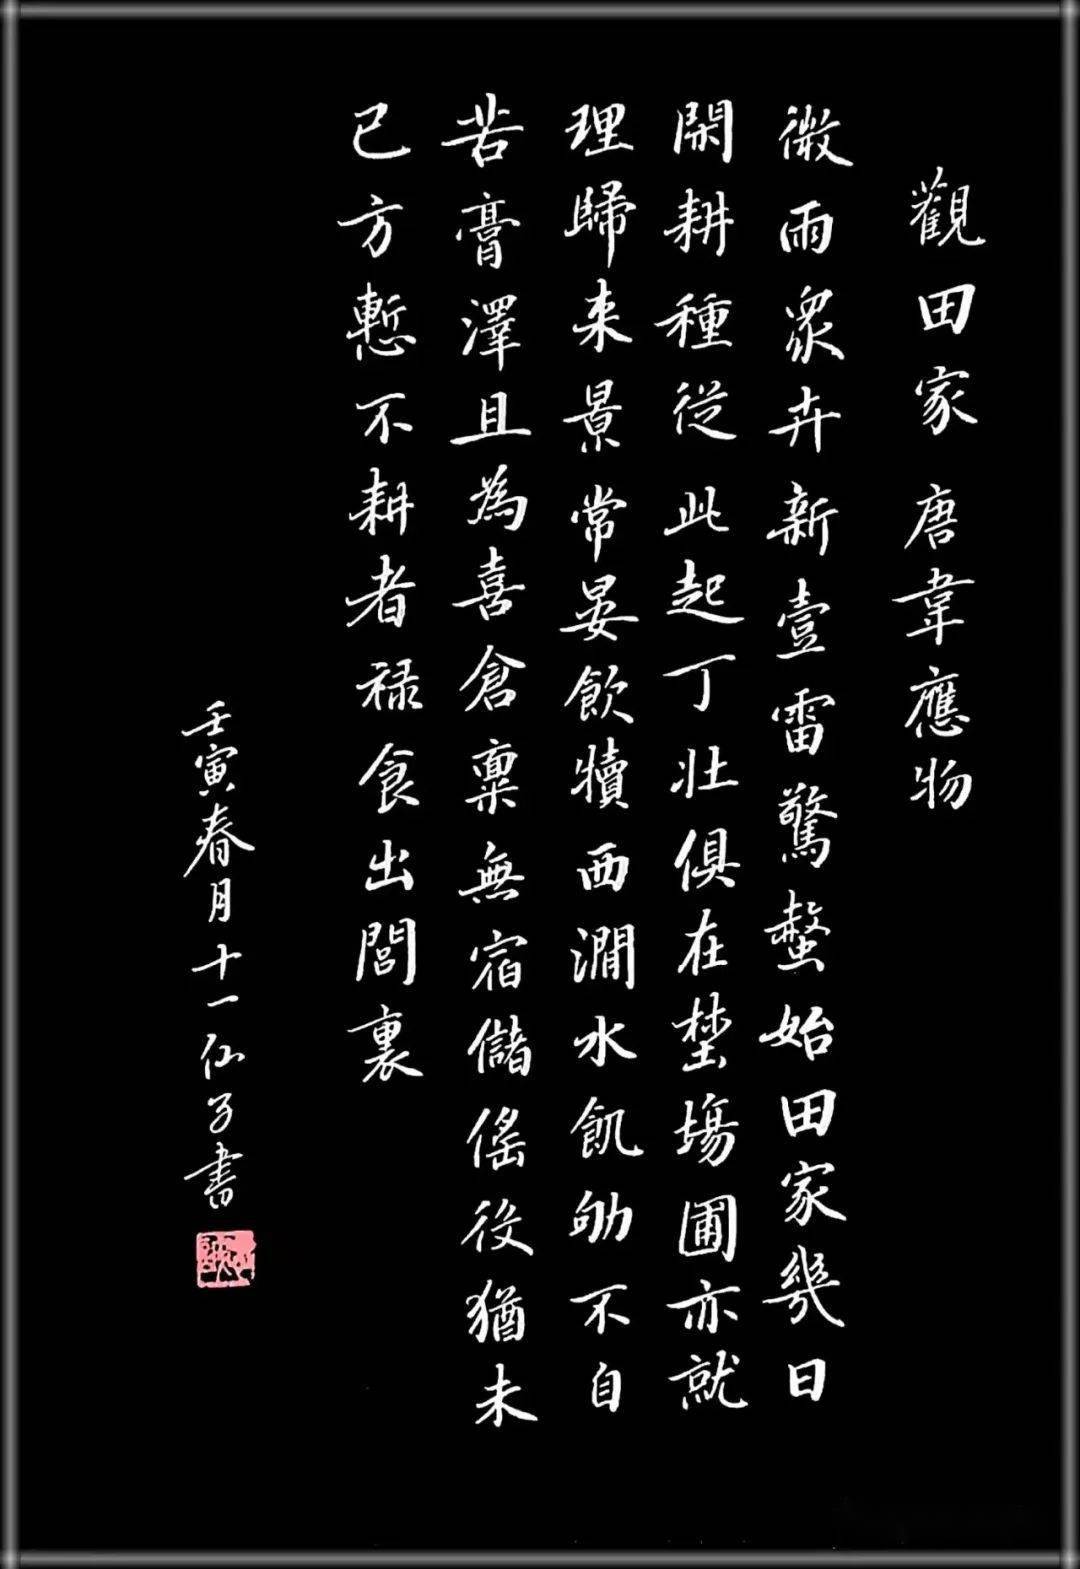 觀田家 唐韋應物
微雨眾卉新壹雷驚蟄始田家幾日
閑耕種從此起丁壯俱在埜場圃亦就
理歸來景常晏飲犢西澗水飢劬不自
苦膏澤且為喜倉稟無宿儲徭役猶未
已方慙不耕者禄食出閭裏
壬寅春月十一仙子書